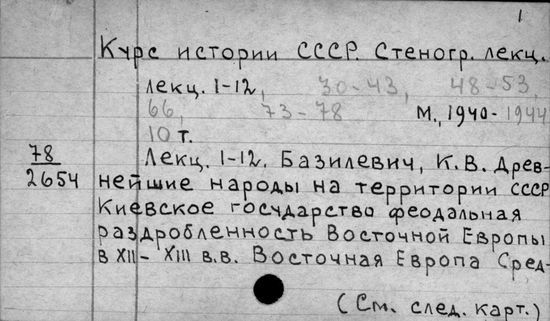 1
Курс истории СССР. Стеногр. лекц.
лекц. 1-12, 30-43, 48-53,
66, 73-78 М., 1940-1944
10 т.
78
2654
Лекц. 1-12. Базилевич, К.В. Древ-
нейшие народы на территории СССР
Киевское государство феодальная
раздробленность Восточной Европы
в XII - XIII в.в. Восточная Европа Сред-
(См. след. карт.)